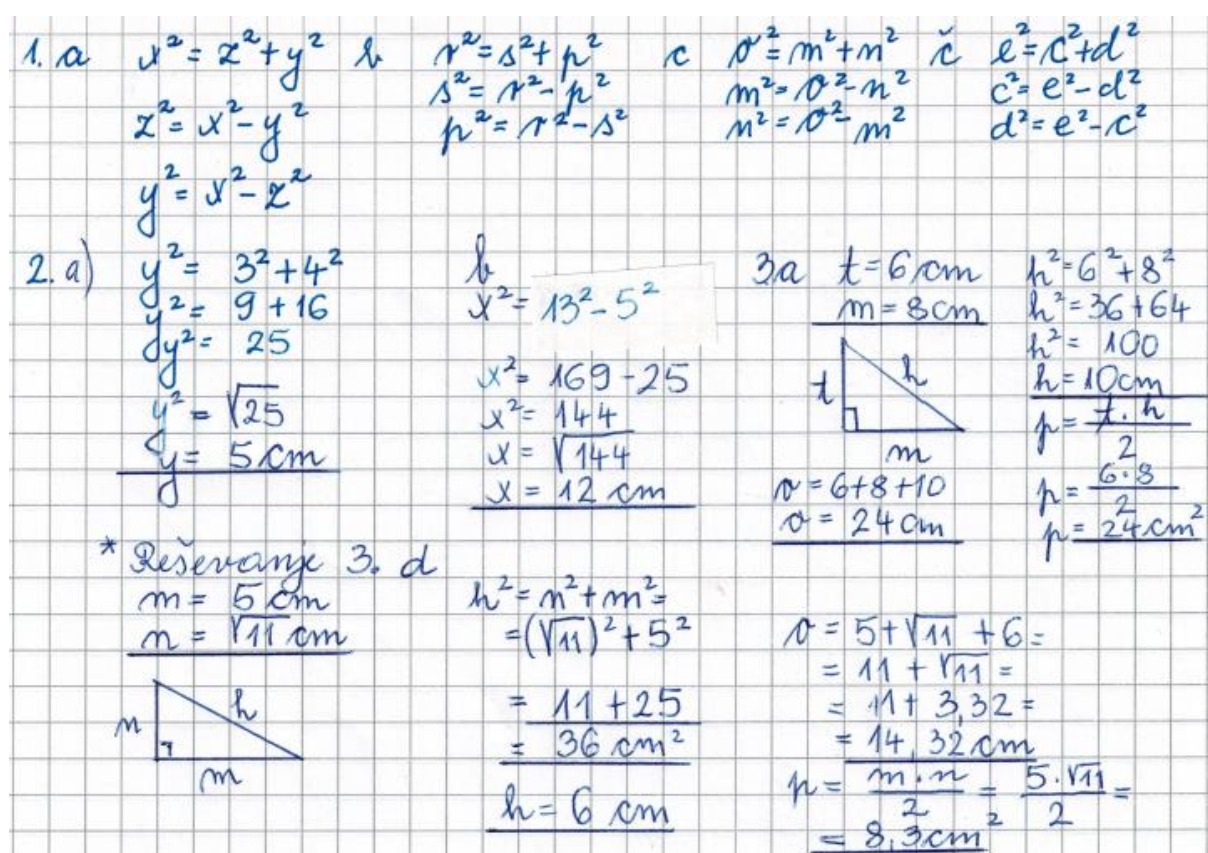 1. a x² = z² + y² b r² = s² + p² c o² = m² + n² č e² = c² + d²
s² = r² - p² m² = o² - n² c² = e² - d²
z² = x² - y² p² = r² - s² n² = o² - m² d² = e² - c²
y² = x² - z²
2. a)
y² = 3² + 4²
y² = 9 + 16
y² = 25
y² = √25
y = 5 cm
b
x² = 13² - 5²
x² = 169 - 25
x² = 144
x = √144
x = 12 cm
3.a t = 6 cm
m = 8 cm
t
h
m
o = 6+8+10
o = 24 cm
h² = 6² + 8²
h² = 36 + 64
h² = 100
h = 10 cm
p = t . h / 2
p = 6·8 / 2
p = 24 cm²
* Reševanje 3. d
m = 5 cm
n = √11 cm
n
h
m
h² = n² + m² =
= (√11)² + 5²
= 11 + 25
= 36 cm²
h = 6 cm
o = 5 + √11 + 6 =
= 11 + √11 =
= 11 + 3,32 =
= 14,32 cm
p = m . n / 2 = 5 . √11 / 2 =
= 8,3 cm²